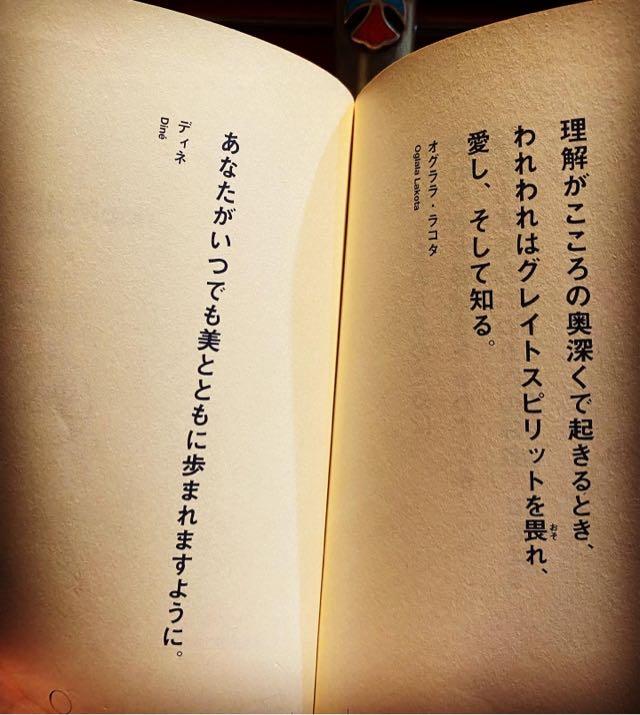 理解がこころの奥深くで起きるとき、
われわれはグレイトスピリットを畏れ、
おそ
愛し、そして知る。
オグララ・ラコタ
Oglala Lakota
あなたがいつでも美とともに歩まれますように。
ディネ
Diné